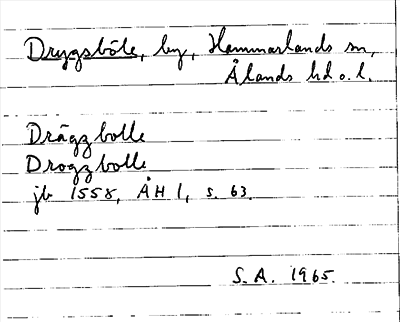 Drygsböle, by, Hammarlands sn,
Ålands hd o. l.
Drägzbolle
Drogzbolle
jb 1558, ÅH 1, s. 63.
S.A. 1965.